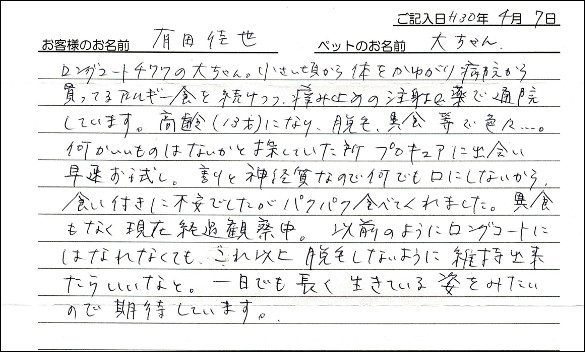 ご記入日 H30年 4月 7日
お客様のお名前 有田佳世 ペットのお名前 大ちゃん
ロングコートチワワの大ちゃん。小さい頃から体をかゆがり病院から
買ってるアルギー食を続けつつ、痒み止めの注射と薬で通院
しています。高齢(13才)になり、脱毛、異食 等で色々…。
何かいいものはないかと探していた所 プロキュアに出会い
早速お試し。割りと神経質なので何でも口にしないから、
食い付きに不安でしたがパクパク食べてくれました。異食
もなく現在経過観察中。以前のようにロングコートに
はなれなくても、これ以上脱毛しないように維持出来
たらいいなと。一日でも長く生きている姿をみたい
ので期待しています。